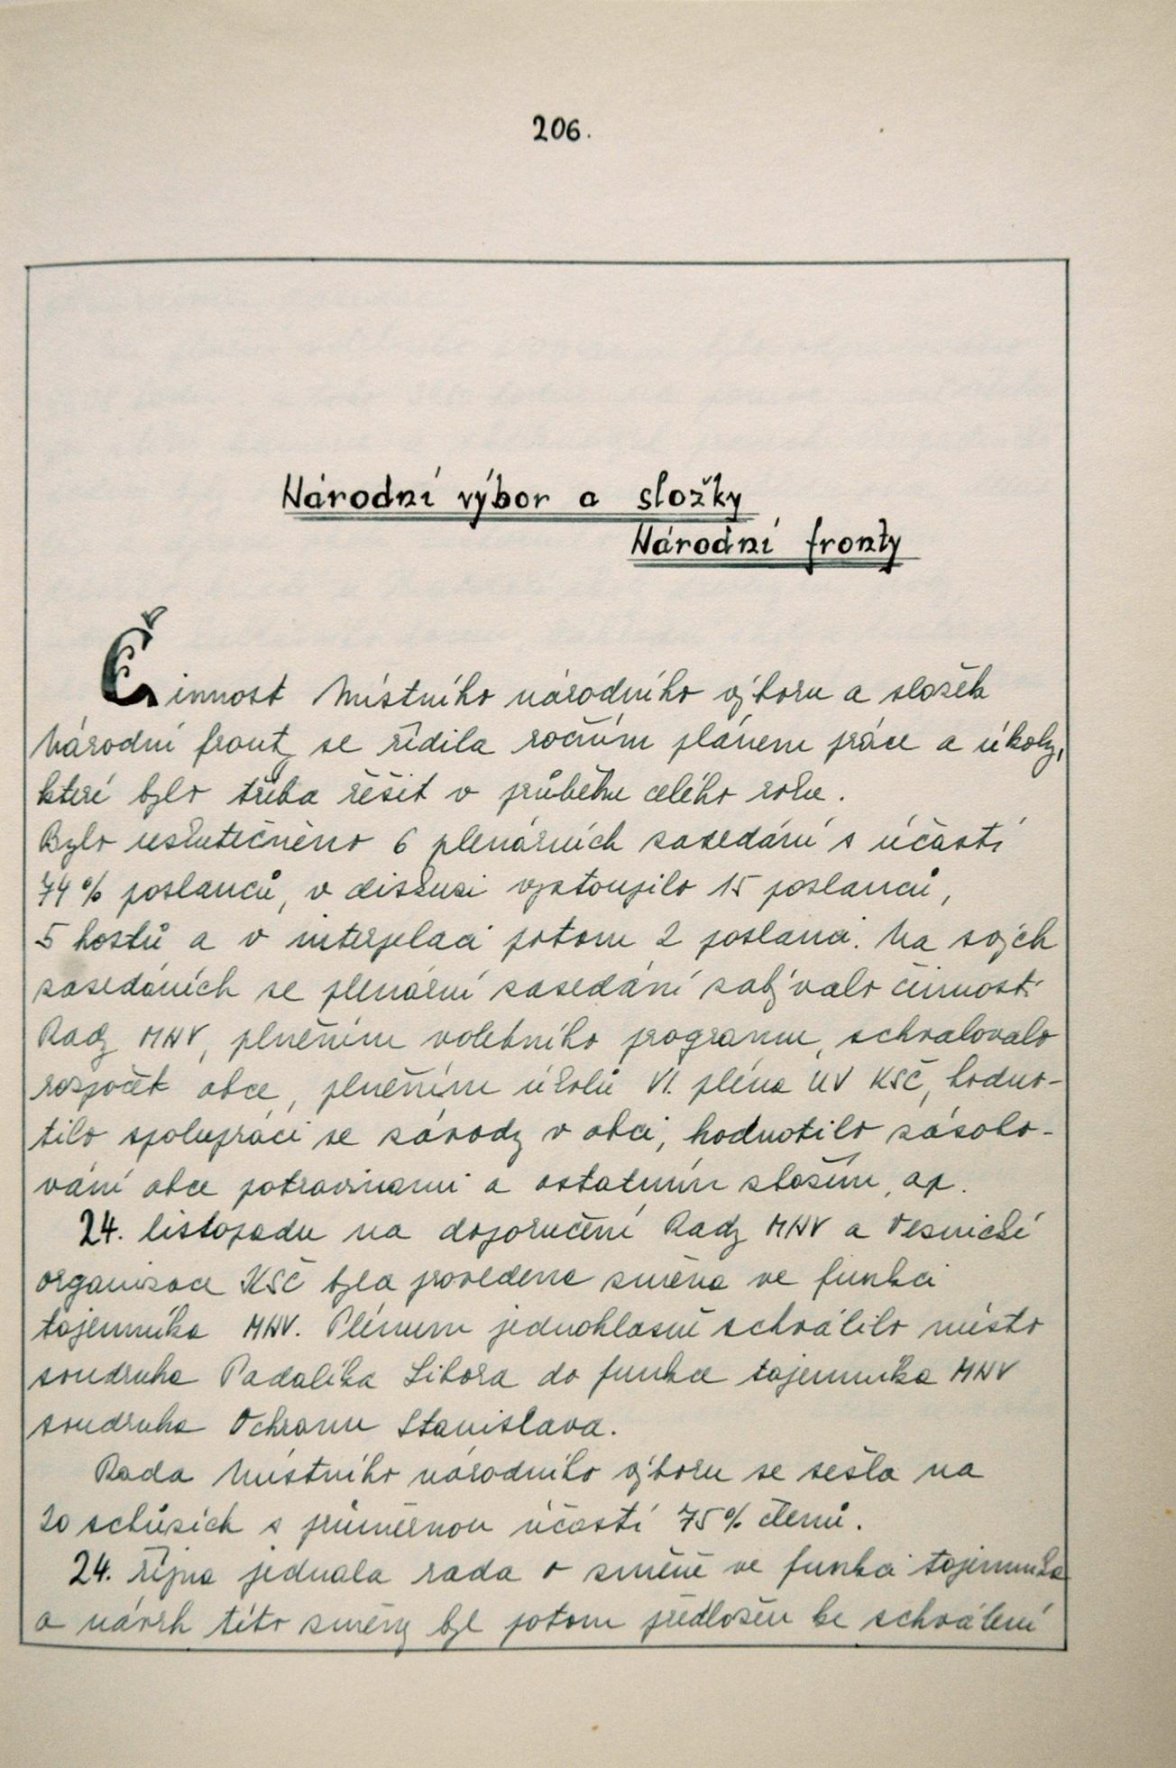 206.
Národní výbor a složky
Národní fronty
Činnost Místního národního výboru a složek
Národní fronty se řídila ročním plánem práce a úkoly,
které bylo třeba řešit v průběhu celého roku.
Bylo uskutečněno 6 plenárních zasedání s účastí
74 % poslanců, v diskusi vystoupilo 15 poslanců,
5 hostů a v interpelaci potom 2 poslanci. Na svých
zasedáních se plenární zasedání zabývalo činností
Rady MNV, plněním volebního programu, schvalovalo
rozpočet obce, plněním úkolů VI. pléna ÚV KSČ, hodno-
tilo spolupráci se závody v obci, hodnotilo zásobo-
vání obce potravinami a ostatním zbožím, ap.
24. listopadu na doporučení Rady MNV a Vesnické
organizace KSČ byla provedena změna ve funkci
tajemníka MNV. Plénum jednohlasně schválilo místo
soudruha Padalíka Libora do funkce tajemníka MNV
soudruha Ochranu Stanislava.
Rada Místního národního výboru se sešla na
20 schůzích s průměrnou účastí 75 % členů.
24. října jednala rada o změně ve funkci tajemníka
a návrh této změny byl potom předložen ke schválení